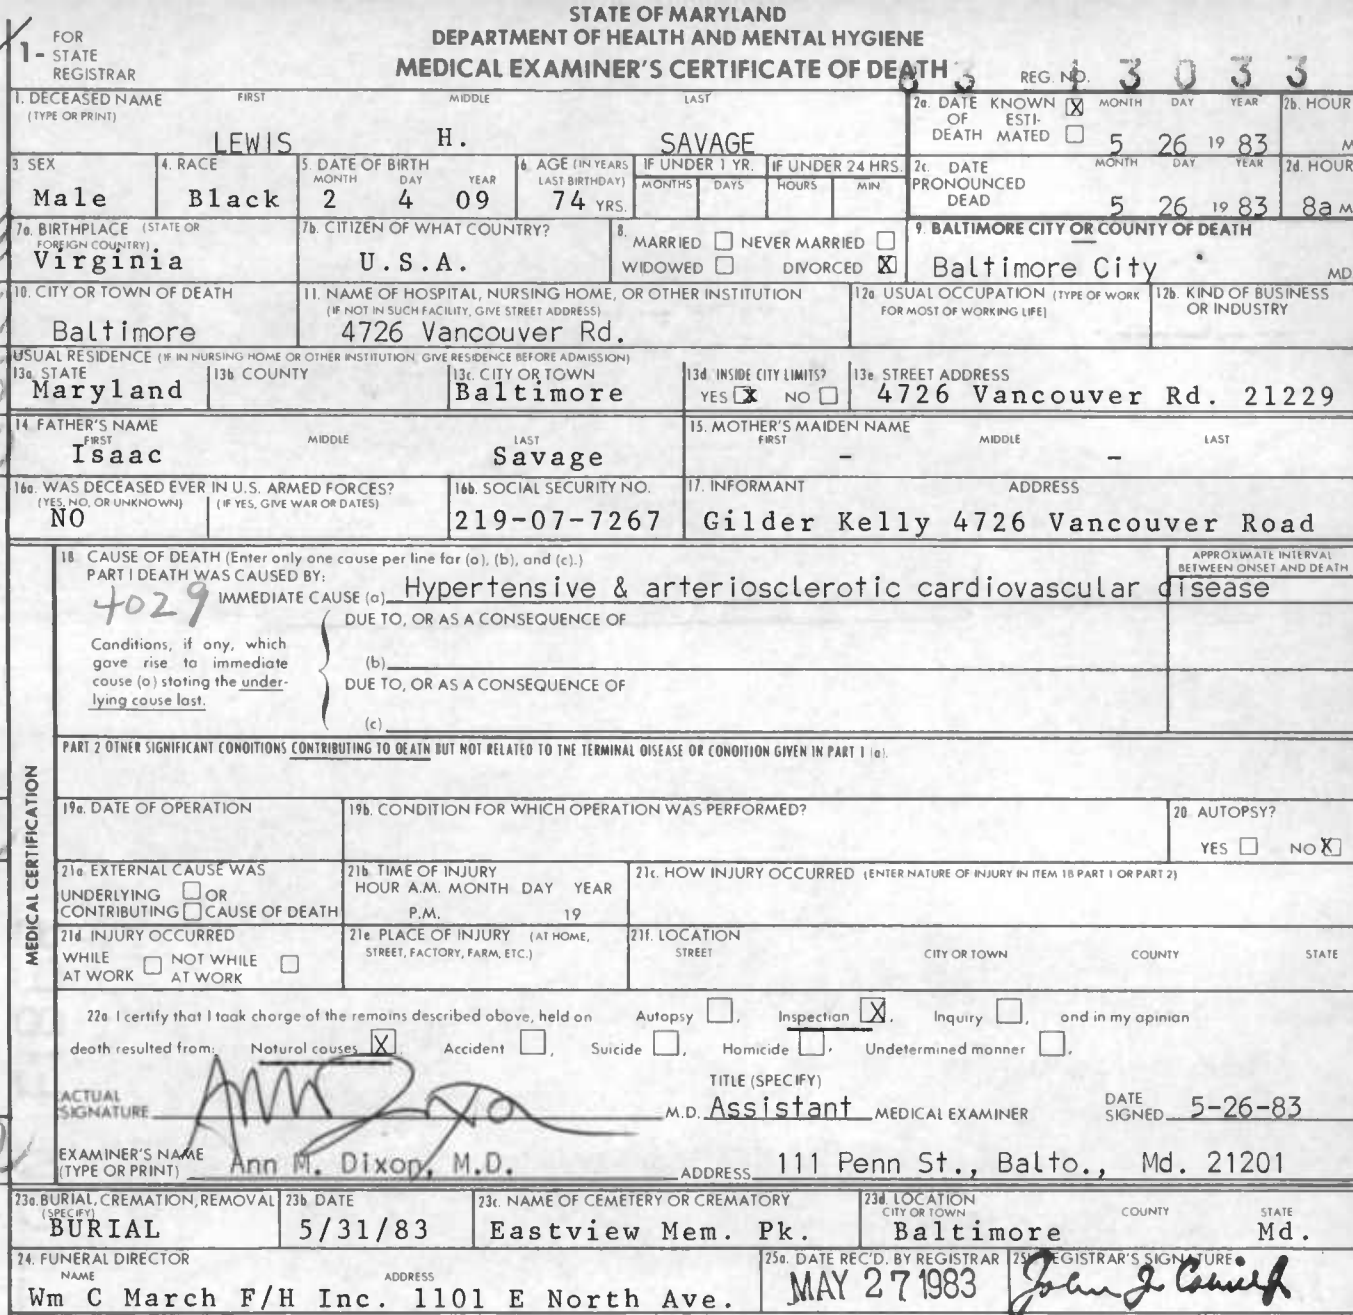 STATE OF MARYLAND
DEPARTMENT OF HEALTH AND MENTAL HYGIENE
MEDICAL EXAMINER'S CERTIFICATE OF DEATH
1- FOR STATE REGISTRAR
REG. NO. 83 13033
1. DECEASED NAME (TYPE OR PRINT) FIRST MIDDLE LAST
LEWIS H. SAVAGE
2a. DATE OF DEATH KNOWN X ESTIMATED MONTH DAY YEAR 2b. HOUR
5 26 19 83 M
3 SEX 4. RACE 5. DATE OF BIRTH MONTH DAY YEAR 6 AGE (IN YEARS LAST BIRTHDAY) IF UNDER 1 YR. MONTHS DAYS IF UNDER 24 HRS. HOURS MIN
Male Black 2 4 09 74 YRS.
2c. DATE PRONOUNCED DEAD MONTH DAY YEAR 2d. HOUR
5 26 19 83 8a M
7a. BIRTHPLACE (STATE OR FOREIGN COUNTRY)
Virginia
7b. CITIZEN OF WHAT COUNTRY?
U.S.A.
8. MARRIED NEVER MARRIED
WIDOWED DIVORCED X
9. BALTIMORE CITY OR COUNTY OF DEATH
Baltimore City MD
10. CITY OR TOWN OF DEATH
Baltimore
11. NAME OF HOSPITAL, NURSING HOME, OR OTHER INSTITUTION
(IF NOT IN SUCH FACILITY, GIVE STREET ADDRESS)
4726 Vancouver Rd.
12a. USUAL OCCUPATION (TYPE OF WORK FOR MOST OF WORKING LIFE)
12b. KIND OF BUSINESS OR INDUSTRY
USUAL RESIDENCE (IF IN NURSING HOME OR OTHER INSTITUTION, GIVE RESIDENCE BEFORE ADMISSION)
13a. STATE 13b. COUNTY 13c. CITY OR TOWN 13d. INSIDE CITY LIMITS? 13e. STREET ADDRESS
Maryland Baltimore YES X NO 4726 Vancouver Rd. 21229
14. FATHER'S NAME FIRST MIDDLE LAST
Isaac Savage
15. MOTHER'S MAIDEN NAME FIRST MIDDLE LAST
- -
16a. WAS DECEASED EVER IN U.S. ARMED FORCES?
(YES, NO, OR UNKNOWN) (IF YES, GIVE WAR OR DATES)
NO
16b. SOCIAL SECURITY NO.
219-07-7267
17. INFORMANT ADDRESS
Gilder Kelly 4726 Vancouver Road
MEDICAL CERTIFICATION
18 CAUSE OF DEATH (Enter only one cause per line for (a), (b), and (c).)
APPROXIMATE INTERVAL BETWEEN ONSET AND DEATH
PART I DEATH WAS CAUSED BY:
4029
IMMEDIATE CAUSE (a) Hypertensive & arteriosclerotic cardiovascular disease
DUE TO, OR AS A CONSEQUENCE OF
Conditions, if any, which gave rise to immediate cause (a) stating the underlying cause last.
(b)
DUE TO, OR AS A CONSEQUENCE OF
(c)
PART 2 OTHER SIGNIFICANT CONDITIONS CONTRIBUTING TO DEATH BUT NOT RELATED TO THE TERMINAL DISEASE OR CONDITION GIVEN IN PART 1 (a).
19a. DATE OF OPERATION
19b. CONDITION FOR WHICH OPERATION WAS PERFORMED?
20. AUTOPSY?
YES NO X
21a. EXTERNAL CAUSE WAS
UNDERLYING OR
CONTRIBUTING CAUSE OF DEATH
21b. TIME OF INJURY
HOUR A.M. MONTH DAY YEAR
P.M. 19
21c. HOW INJURY OCCURRED (ENTER NATURE OF INJURY IN ITEM 18 PART 1 OR PART 2)
21d. INJURY OCCURRED
WHILE AT WORK NOT WHILE AT WORK
21e. PLACE OF INJURY (AT HOME, STREET, FACTORY, FARM, ETC.)
21f. LOCATION
STREET CITY OR TOWN COUNTY STATE
22a I certify that I took charge of the remains described above, held on Autopsy , Inspection X, Inquiry , and in my opinion
death resulted from: Natural causes X Accident , Suicide , Homicide , Undetermined manner ,
ACTUAL SIGNATURE Ann Dixon M.D.
TITLE (SPECIFY)
Assistant MEDICAL EXAMINER
DATE SIGNED 5-26-83
EXAMINER'S NAME (TYPE OR PRINT) Ann M. Dixon, M.D.
ADDRESS 111 Penn St., Balto., Md. 21201
23a. BURIAL, CREMATION, REMOVAL (SPECIFY)
BURIAL
23b. DATE
5/31/83
23c. NAME OF CEMETERY OR CREMATORY
Eastview Mem. Pk.
23d. LOCATION CITY OR TOWN COUNTY STATE
Baltimore Md.
24. FUNERAL DIRECTOR
NAME ADDRESS
Wm C March F/H Inc. 1101 E North Ave.
25a. DATE REC'D. BY REGISTRAR
MAY 27 1983
REGISTRAR'S SIGNATURE
John J.